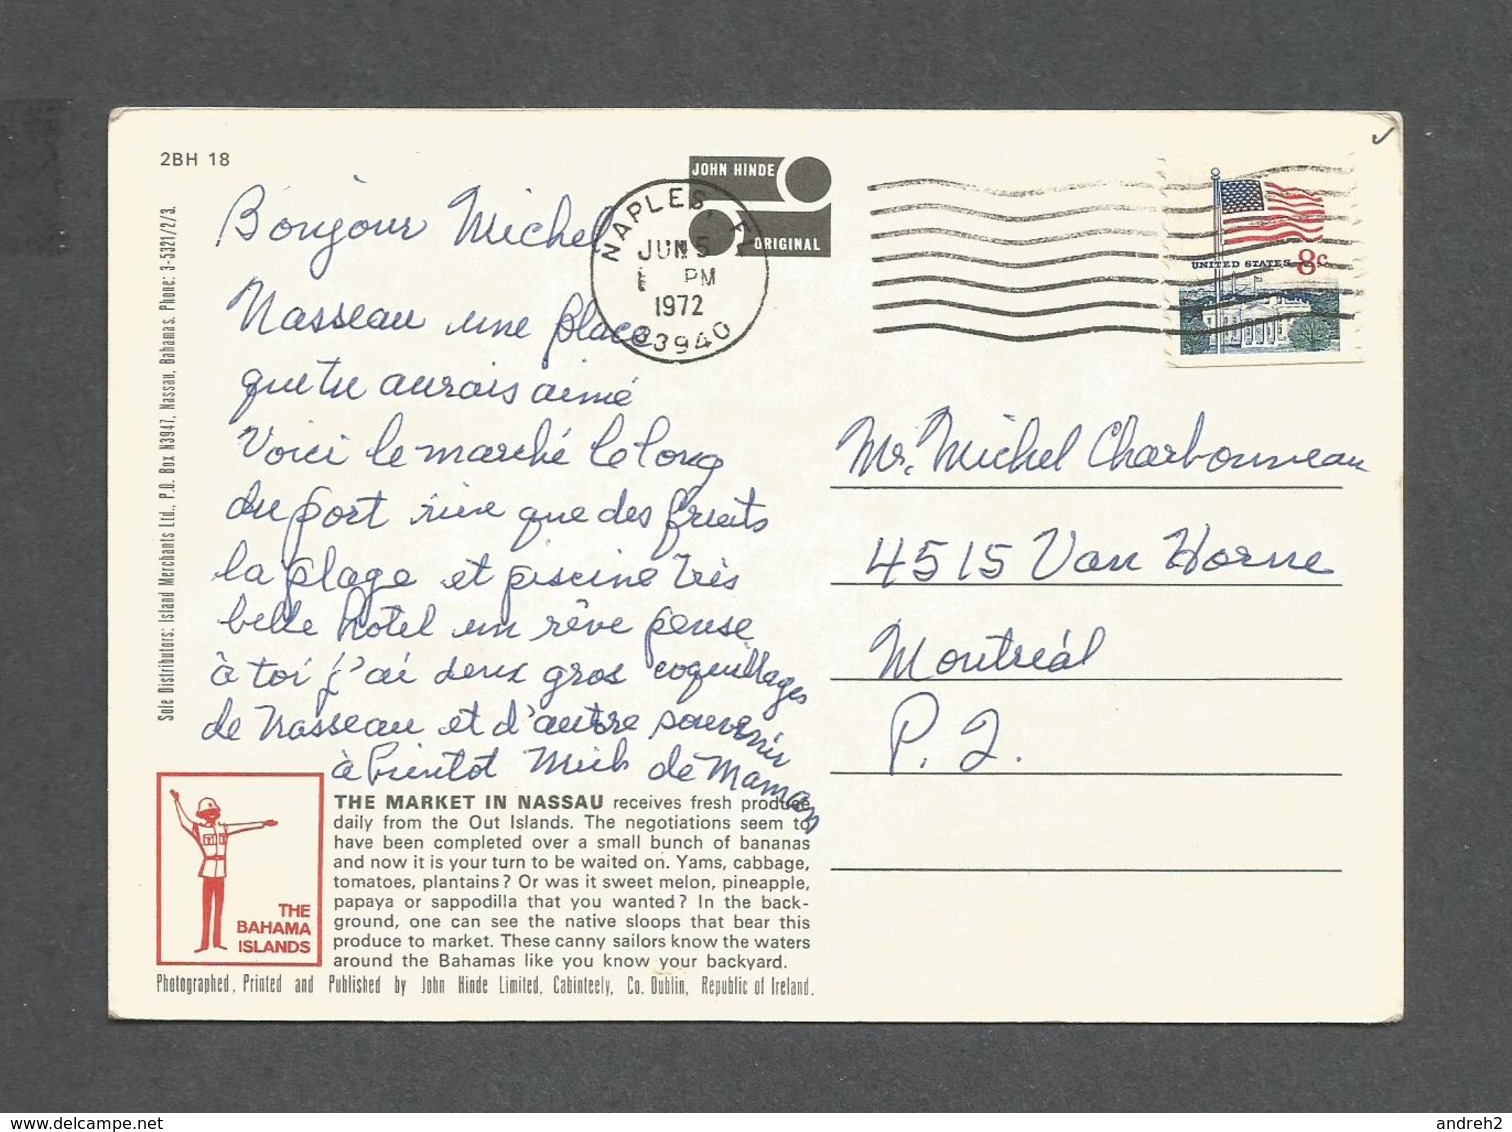 2BH 18
JOHN HINDE
ORIGINAL
NAPLES, F
JUN 5
PM
1972
33940
UNITED STATES 8c
Bonjour Michel
Nasseau une place
que tu aurais aimé
Voici le marché le long
du port rien que des fruits
la plage et piscine très
belle hôtel un rêve pense
à toi j'ai deux gros coquillages
de Nasseau et d'autre souvenir
à bientot Mich de Maman
Mr. Michel Charbonneau
4515 Van Horne
Montréal
P. Q.
Sole Distributors: Island Merchants Ltd., P.O. Box N3947, Nassau, Bahamas. Phone: 3-5321/2/3.
THE BAHAMA ISLANDS
THE MARKET IN NASSAU receives fresh produce
daily from the Out Islands. The negotiations seem to
have been completed over a small bunch of bananas
and now it is your turn to be waited on. Yams, cabbage,
tomatoes, plantains? Or was it sweet melon, pineapple,
papaya or sappodilla that you wanted? In the back-
ground, one can see the native sloops that bear this
produce to market. These canny sailors know the waters
around the Bahamas like you know your backyard.
Photographed, Printed and Published by John Hinde Limited, Cabinteely, Co. Dublin, Republic of Ireland.
andreh2